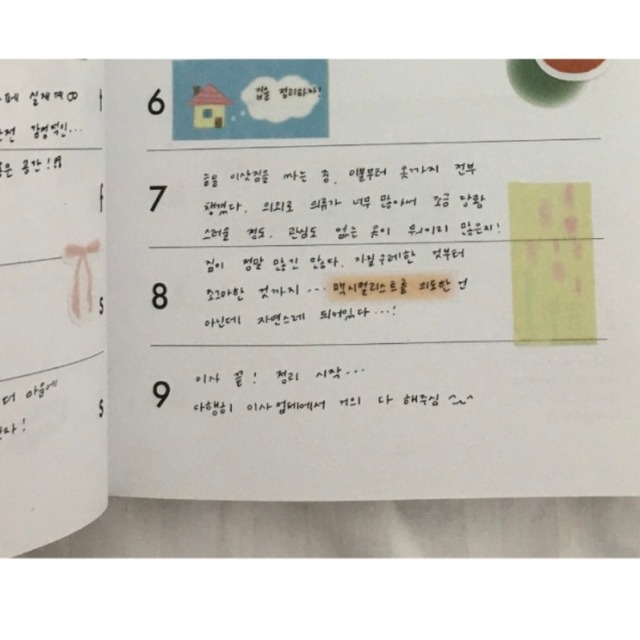 6
집을 정리하자!
7
종일 이삿짐을 싸는 중. 이불부터 옷가지 전부
챙겼다. 의외로 의류가 너무 많아서 조금 당황
스러울 정도. 관심도 없는 옷이 뭐이리 많은지!
8
짐이 정말 많긴 많구나. 자질구레한 것부터
조그마한 것까지... 맥시멀리스트를 의도한 건
아닌데 자연스레 되어있다...!
9
이사 끝! 정리 시작...
다행히 이사업체에서 거의 다 해주심 ^^
좋은 공간!
더 마음에